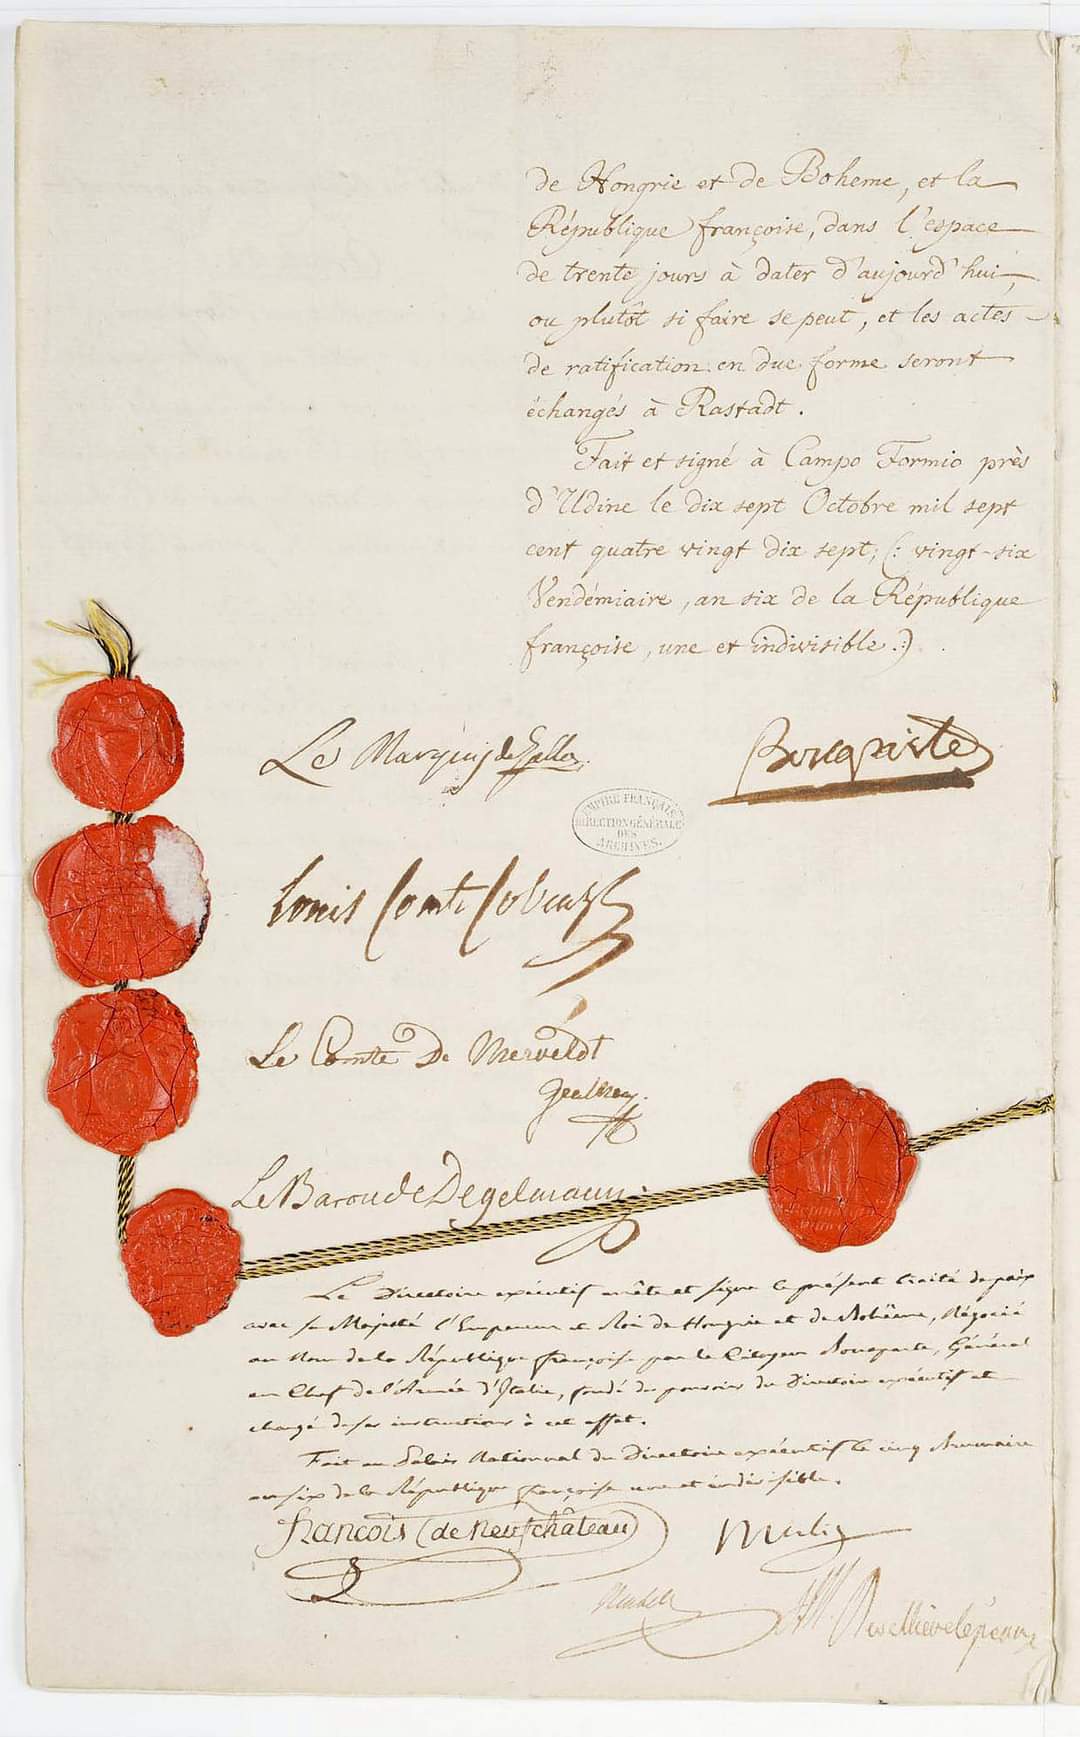 de Hongrie et de Boheme, et la
République françoise, dans l'espace
de trente jours à dater d'aujourd'hui,
ou plutôt si faire se peut, et les actes
de ratification en due forme seront
échangés à Rastadt.
Fait et signé à Campo Formio près
d'Udine le dix sept Octobre mil sept
cent quatre vingt dix sept; (: vingt-six
Vendémiaire, an six de la République
françoise, une et indivisible.:)
Le Marquis de Gallo.
Bonaparte
EMPIRE FRANÇAIS
DIRECTION GÉNÉRALE
DES
ARCHIVES.
Louis Comte Cobenzl
Le Comte De Merveldt
Le Baron de Degelmann.
Le Directoire exécutif arrête et signe le présent traité de paix
avec sa Majesté l'Empereur et Roi de Hongrie et de Bohëme, Négocié
au Nom de la République françoise par le Citoyen Bonaparte, Général
en Chef de l'Armée d'Italie, fondé de pouvoirs du Directoire exécutif et
chargé de ses instructions à cet effet.
Fait au Palais National du Directoire exécutif le cinq Brumaire
an six de la République françoise une et indivisible.
François (de Neufchâteau)
Merlin
Rewbell
L. M. Revelliere lépeaux